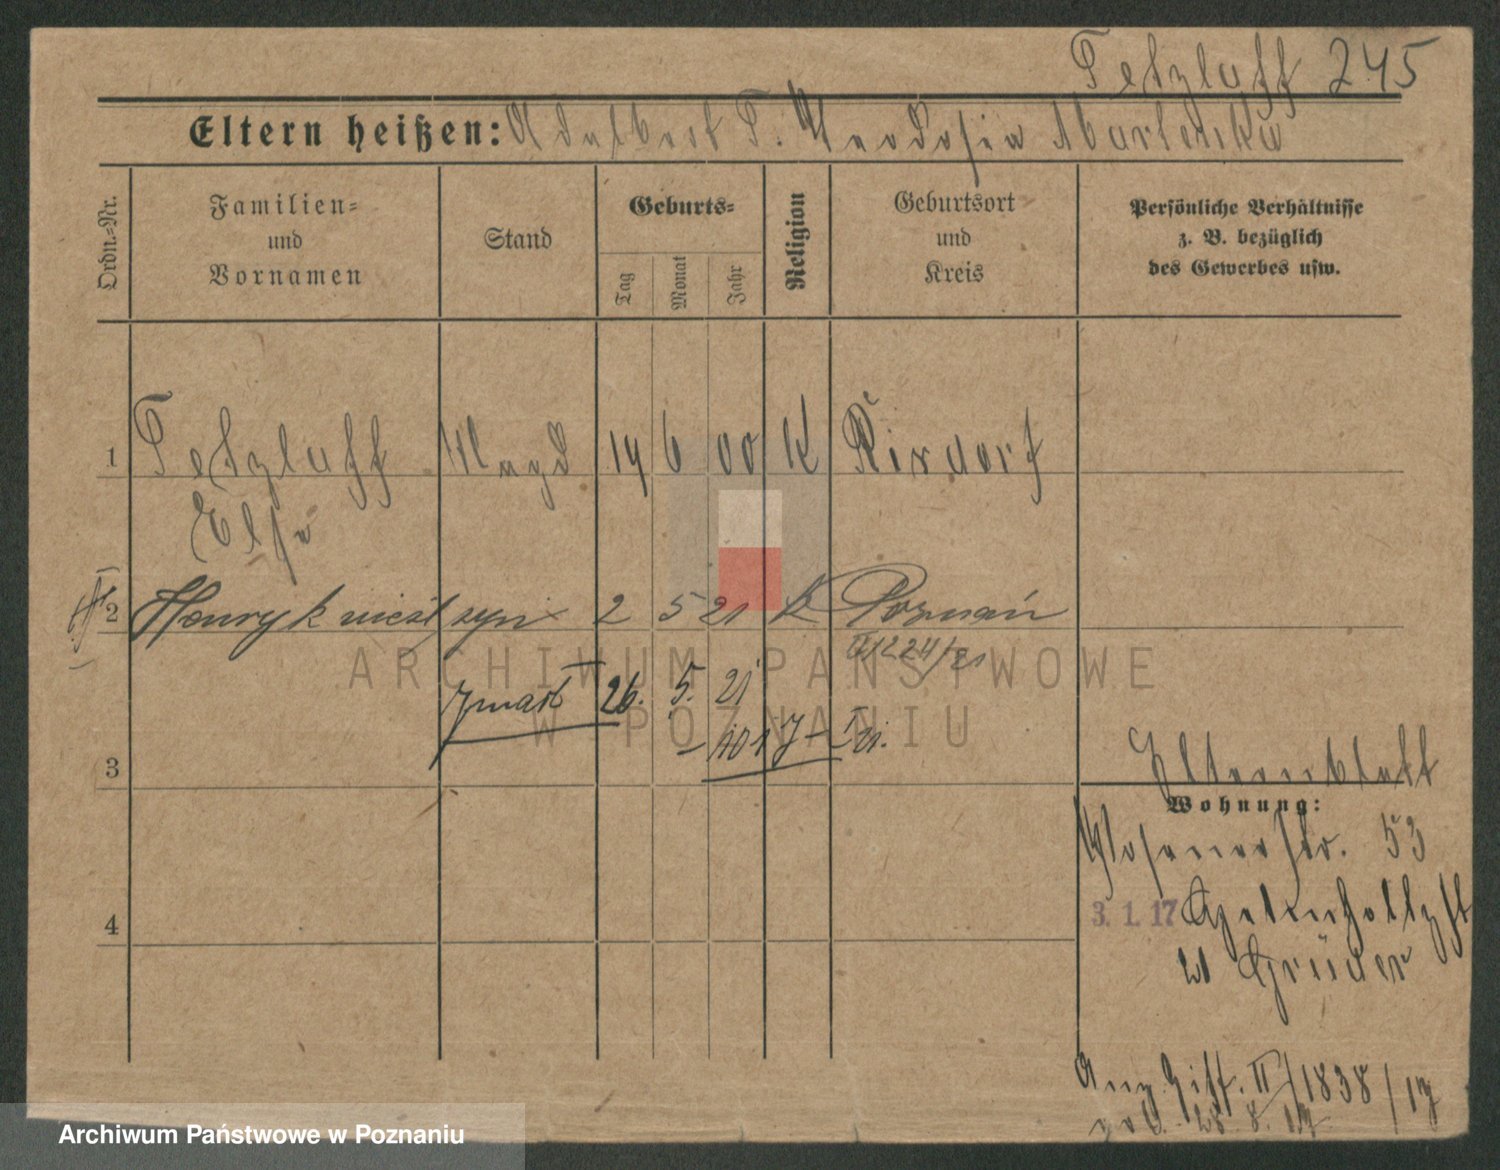 Tetzlaff 245
Eltern heißen: Adalbert T. Theodosia Marlenska
Ordn.-Nr.
Familien-
und
Vornamen
Stand
Geburts-
Tag
Monat
Jahr
Religion
Geburtsort
und
Kreis
Persönliche Verhältnisse
z. B. bezüglich
des Gewerbes usw.
1 Tetzlaff Magd 14 6 00 K Rixdorf
Else
2 Henryk nieśl. syn 2 5 21 K Poznań
zmarł 26. 5. 21
3
Elternblatt
Wohnung:
Posenerstr. 53
3. 1. 17
4
II/1838/17
28. 8. 17
ARCHIWUM PAŃSTWOWE
W POZNANIU
Archiwum Państwowe w Poznaniu